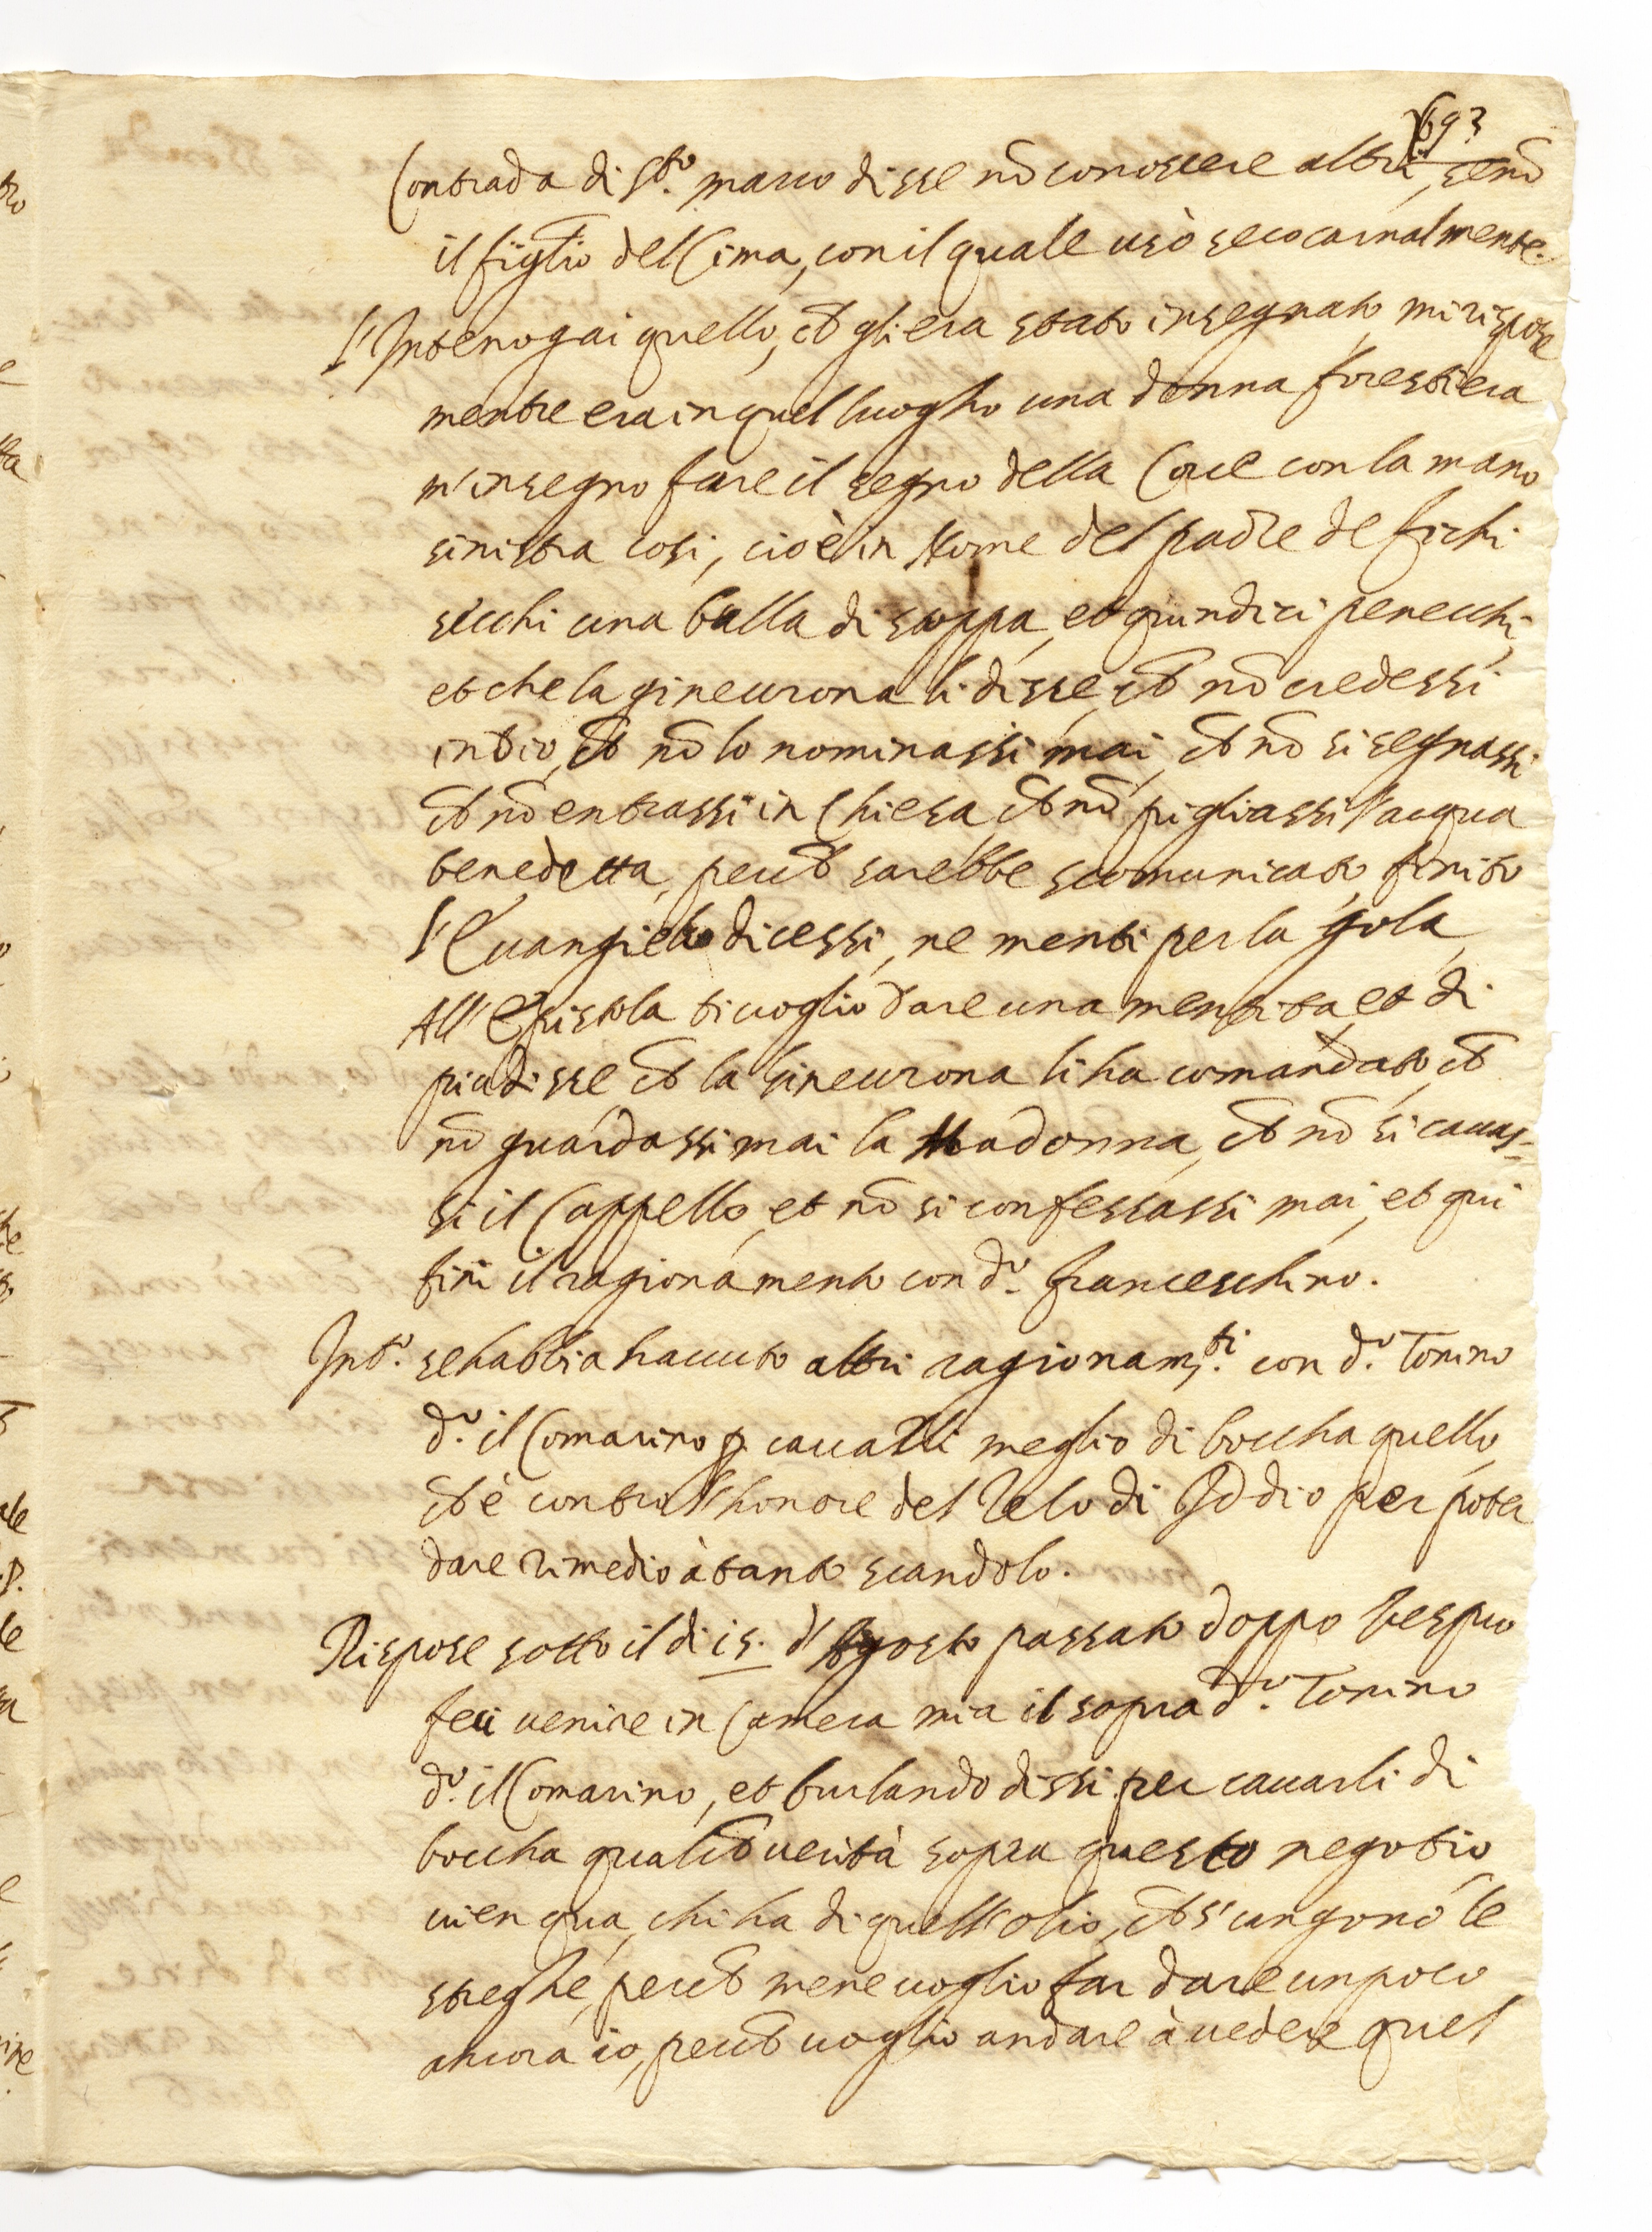 693
Contrada di S.to marco disse nō conoscere altri, se nō
il figlio del Cima, con il quale usò seco carnalmente.
L'Interrogai quello, ch̄ gli era stato insegnato, mi rispose
mentre era in quel luogho una donna forestiera
m'insegno fare il segno della Croce con la mano
sinistra cosi, cioè in Nome del padre de fichi
sechi una balla di stoppa, et quindici penecchi,
et che la gineurona li disse, ch̄ nō credessi
in Dio, ch̄ nō lo nominassi mai, ch̄ nō si segnassi
ch̄ nō entrassi in Chiesa, ch̄ nō pigliassi l'acqua
benedetta, perch̄ sarebbe scomunicato, finito
l'Euangielo dicessi, ne menti per la gola,
All'Epistola ti uoglio dare una mentita, et di
piu disse ch̄ la Gineurona li ha comandato, ch̄
nō guardassi mai la Madonna, ch̄ nō si cauas-
si il Cappello, et nō si confessassi mai, et qui
finì il ragionamento con d.o franceschino.
Int.o se habbia hauuto altri ragionam.ti con d.o Tonino
d.o il Comarino p cauarli meglio di boccha quello,
ch̄ è contro l'honore del Zelo di Iddio per poter
dare rimedio à tanto scandolo.
Rispose sotto il di 15. d'Agosto passato doppo Vespro
feci uenire in Camera mia il soprad.o Tonino
d.o il Comarino, et burlando dissi per cauarli di
boccha qualch̄ uerità sopra questo negotio,
uien qua, chi ha di quell'olio, ch̄ s'ungono le
streghe, perch̄ mene uoglio far dare un poco
ancora io, perch̄ uoglio andare à uedere quel